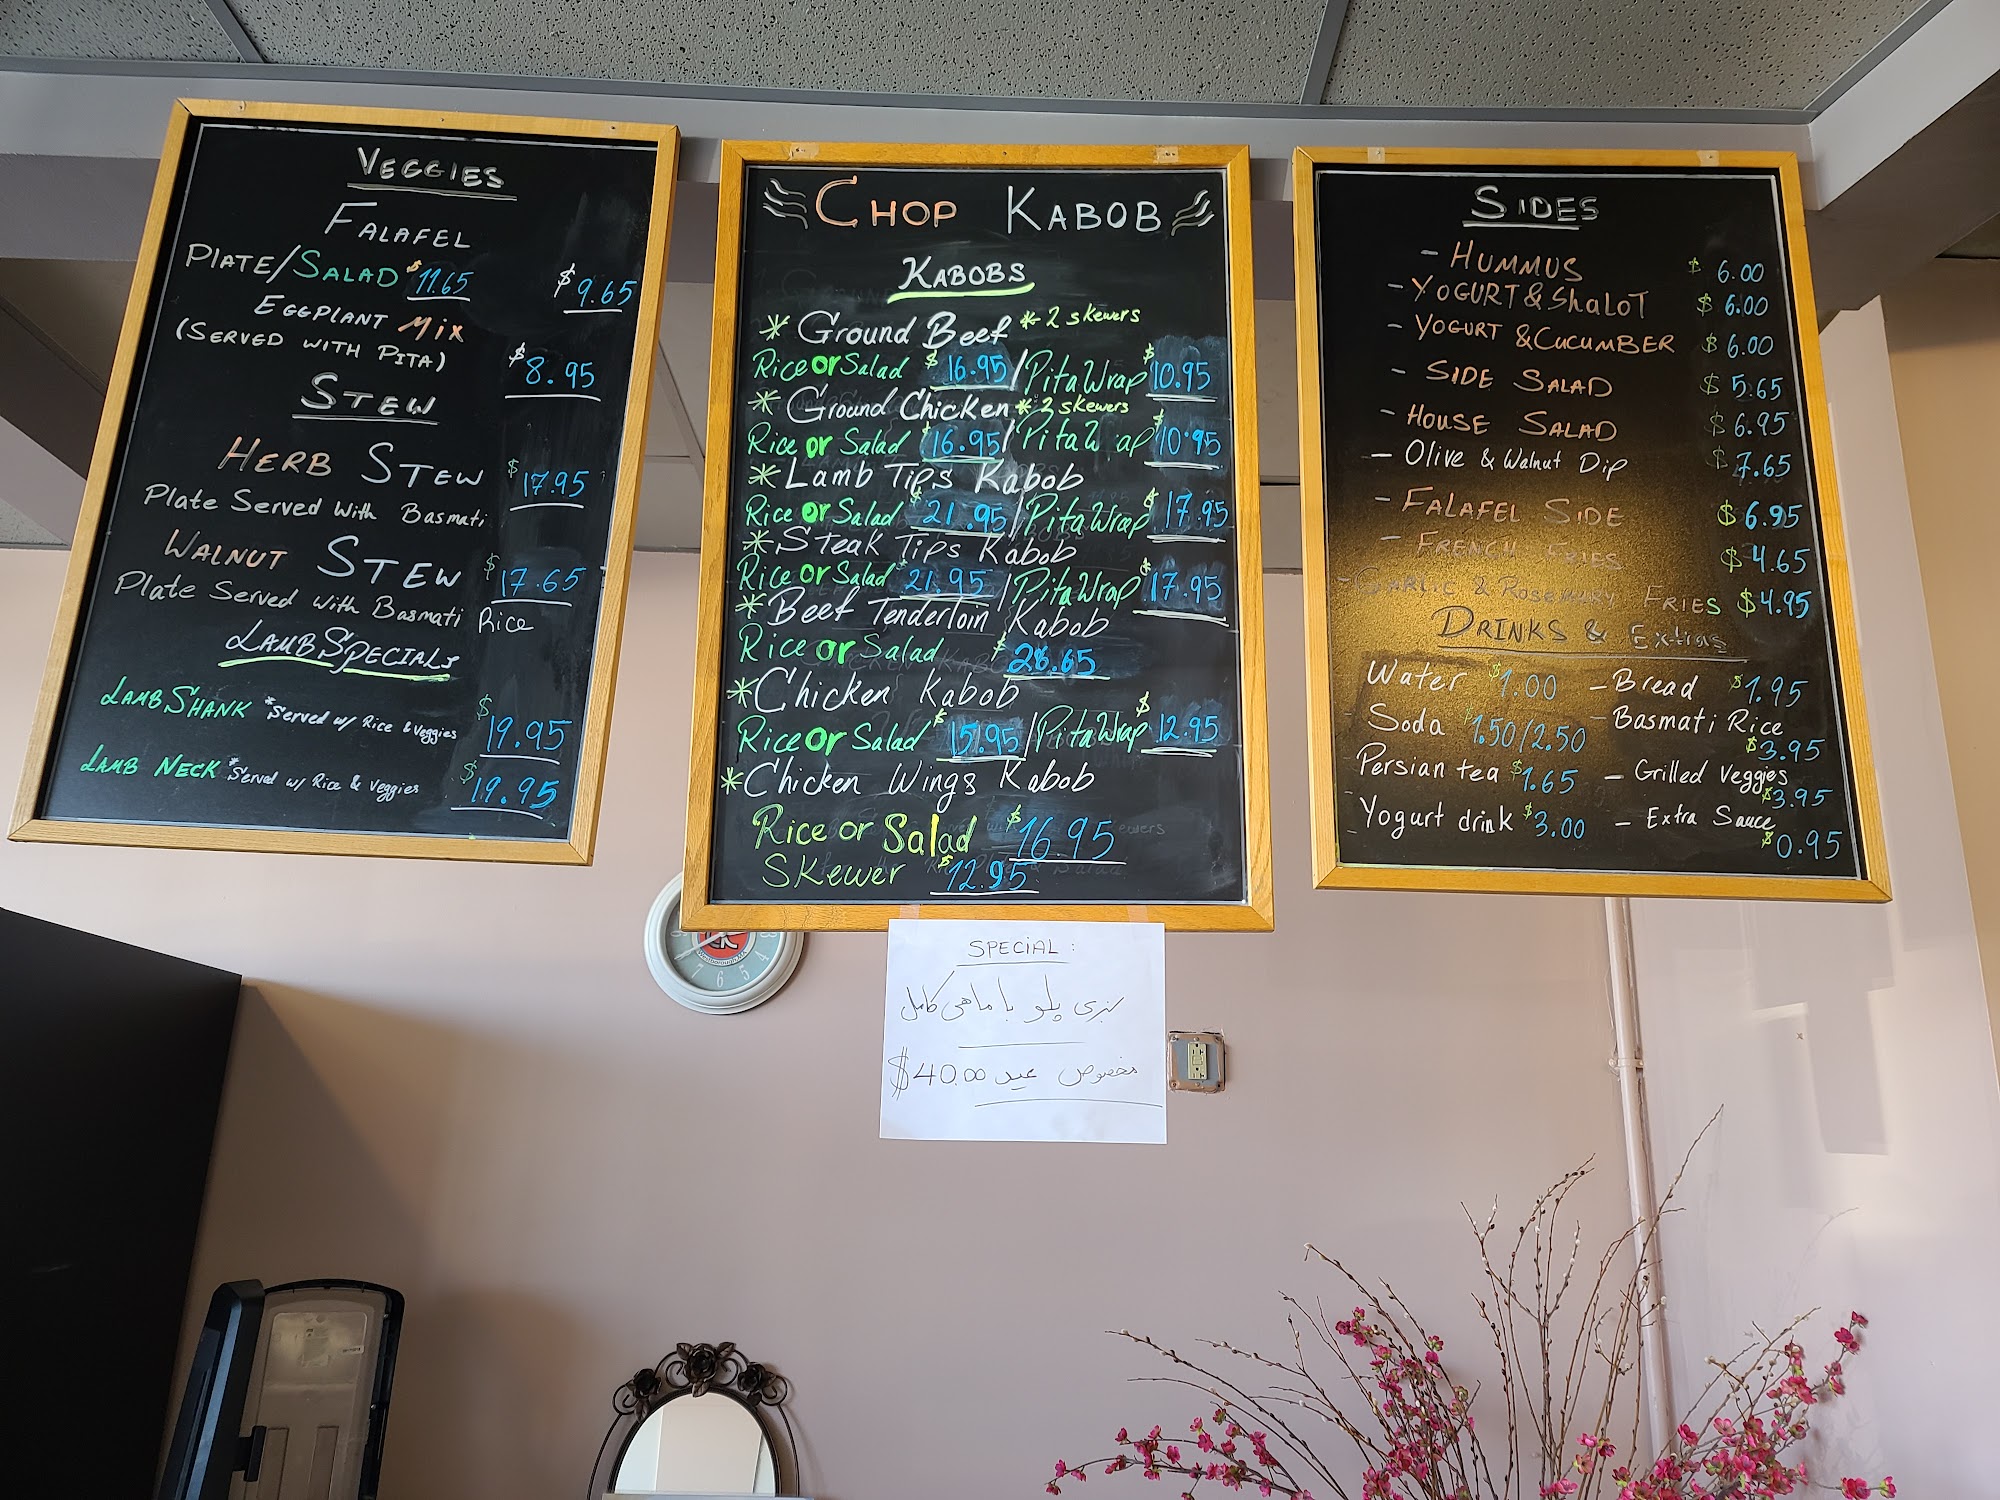 VEGGIES
FALAFEL
PLATE/SALAD $11.65 $9.65
EGGPLANT MIX
(SERVED WITH PITA) $8.95
STEW
HERB STEW $17.95
Plate Served With Basmati
WALNUT STEW $17.65
Plate Served With Basmati Rice
LAMB SPECIALS
LAMB SHANK *Served w/ Rice & Veggies $19.95
LAMB NECK *Served w/ Rice & Veggies $19.95
CHOP KABOB
KABOBS
* Ground Beef * 2 skewers
Rice or Salad $16.95 / Pita Wrap $10.95
* Ground Chicken * 2 skewers
Rice or Salad $16.95 / Pita W ap $10.95
* Lamb Tips Kabob
Rice or Salad $21.95 / Pita Wrap $17.95
* Steak Tips Kabob
Rice or Salad $21.95 / Pita Wrap $17.95
* Beef Tenderloin Kabob
Rice or Salad $28.65
* Chicken Kabob
Rice or Salad $15.95 / Pita Wrap $12.95
* Chicken Wings Kabob
Rice or Salad $16.95
SKEWER $12.95
SIDES
- HUMMUS $6.00
- YOGURT & ShALOT $6.00
- YOGURT & CUCUMBER $6.00
- SIDE SALAD $5.65
- HOUSE SALAD $6.95
- Olive & Walnut Dip $7.65
- FALAFEL SIDE $6.95
- FRENCH FRIES $4.65
- GARLIC & ROSEMARY FRIES $4.95
DRINKS & Extras
Water $1.00 - Bread $1.95
- Soda $1.50/2.50 - Basmati Rice $3.95
- Persian tea $1.65 - Grilled Veggies $3.95
- Yogurt drink $3.00 - Extra Sauce $0.95
SPECIAL :
سبزی پلو با ماهی کامل
مخصوص عید $40.00
7 6 5 4
Westborough, MA